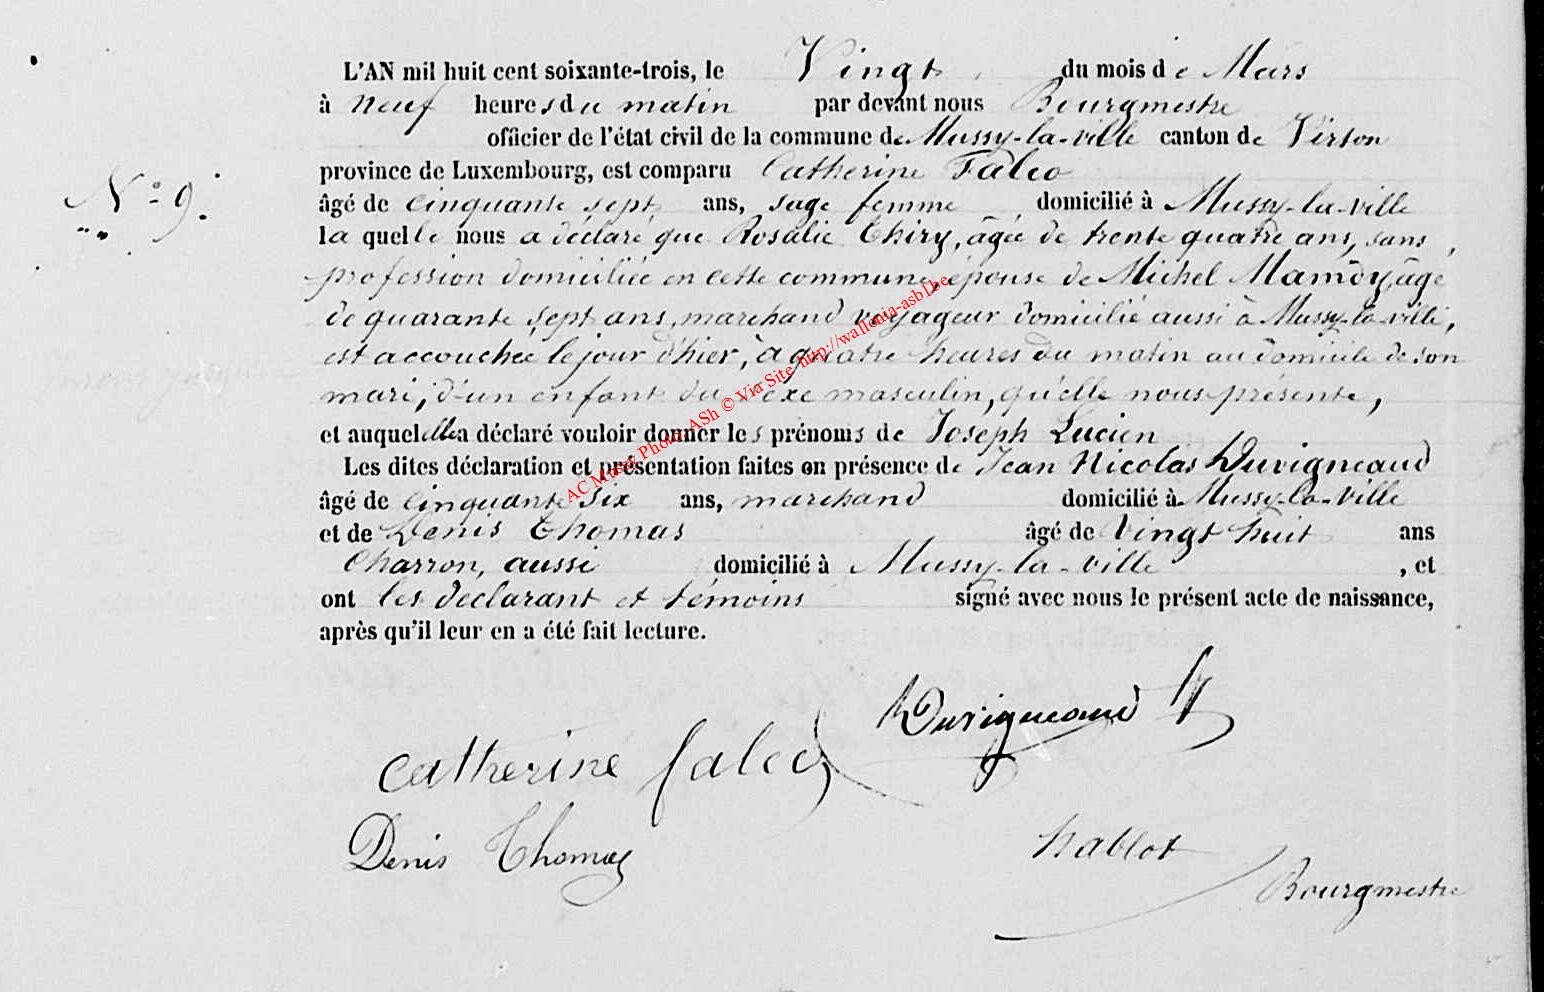 L'AN mil huit cent soixante-trois, le Vingt du mois de Mars
à neuf heures du matin par devant nous Bourgmestre
officier de l'état civil de la commune de Mussy-la-ville canton de Virton
province de Luxembourg, est comparu Catherine Falco
N° 9.
âgé de cinquante sept ans, sage femme domicilié à Mussy-la-ville
la quelle nous a déclaré que Rosalie Thiry, âgée de trente quatre ans, sans
profession domiciliée en cette commune, épouse de Michel Mamdy, âgé
de quarante sept ans, marchand voyageur domicilié aussi à Mussy-la-ville,
est accouchée le jour d'hier, à quatre heures du matin au domicile de son
mari, d'un enfant du sexe masculin, qu'elle nous présente,
et auquel elle a déclaré vouloir donner les prénoms de Joseph Lucien
Les dites déclaration et présentation faites en présence de Jean Nicolas Duvigneaud
âgé de cinquante six ans, marchand domicilié à Mussy-la-Ville
et de Denis Thomas âgé de Vingt huit ans
Charron, aussi domicilié à Mussy-la-ville, et
ont les déclarant et témoins signé avec nous le présent acte de naissance,
après qu'il leur en a été fait lecture.
AC Mussy Photo ASh © Via Site http://wallonia-asbl.be
Duvigneaud
Catherine falco
Denis Thomas
hablot
Bourgmestre